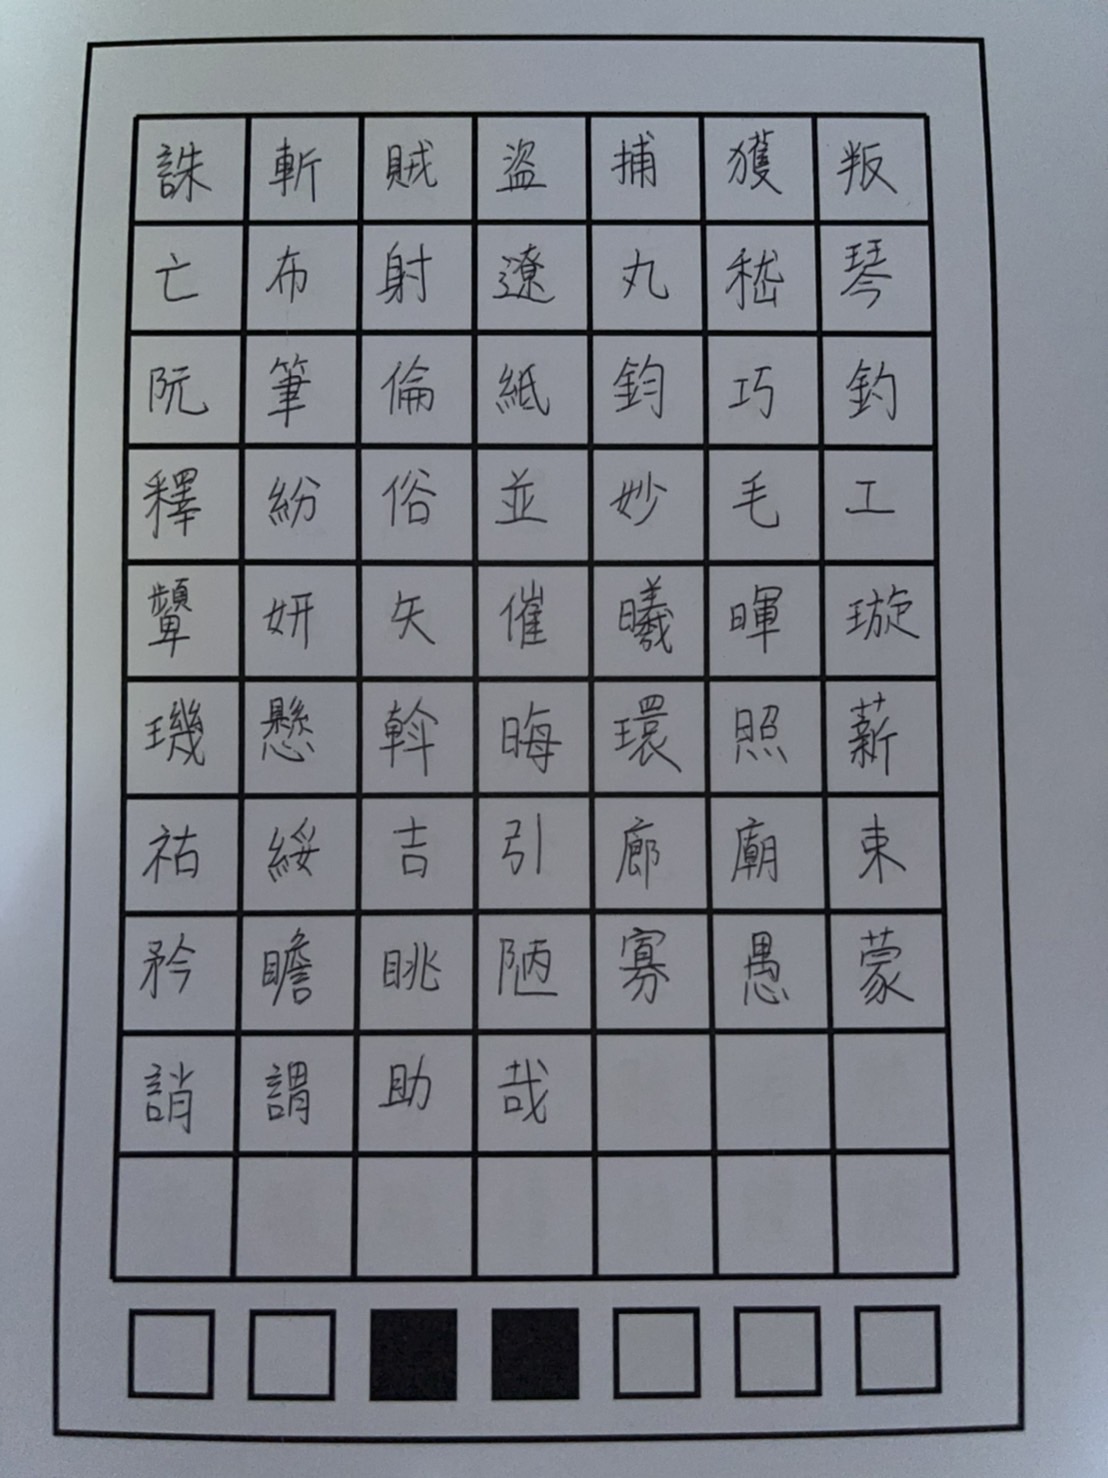 誅斬賊盗捕獲叛
亡布射遼丸嵇琴
阮筆倫紙鈞巧釣
釋紛俗並妙毛工
顰妍矢催曦暉璇
璣懸斡晦環照薪
祜綏吉引廊廟束
矜瞻眺陋寡愚蒙
誚謂助哉